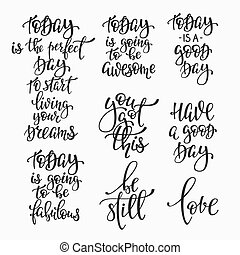 TODAY
is the perfect
DAY
TO START
living
your
DREAMS
TODAY
is going
to be
awesome
TODAY
IS A
GOOD
DAY
you
got
this
HAVE
a good
DAY
TODAY
is going
to be
fabulous
be
still
love